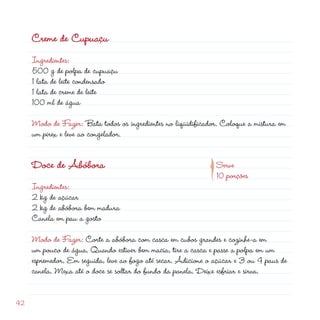 Creme de Cupuaçu
Ingredientes:
500 g de polpa de cupuaçu
1 lata de leite condensado
1 lata de creme de leite
100 ml de água
Modo de Fazer: Bata todos os ingredientes no liquidificador. Coloque a mistura em
um pirex e leve ao congelador.
Doce de Abóbora
Serve
10 porções
Ingredientes:
2 kg de açúcar
2 kg de abóbora bem madura
Canela em pau a gosto
Modo de Fazer: Corte a abóbora com casca em cubos grandes e cozinhe-a em
um pouco de água. Quando estiver bem macia, tire a casca e passe a polpa em um
espremedor. Em seguida, leve ao fogo até secar. Adicione o açúcar e 3 ou 4 paus de
canela. Mexa até o doce se soltar do fundo da panela. Deixe esfriar e sirva.
42